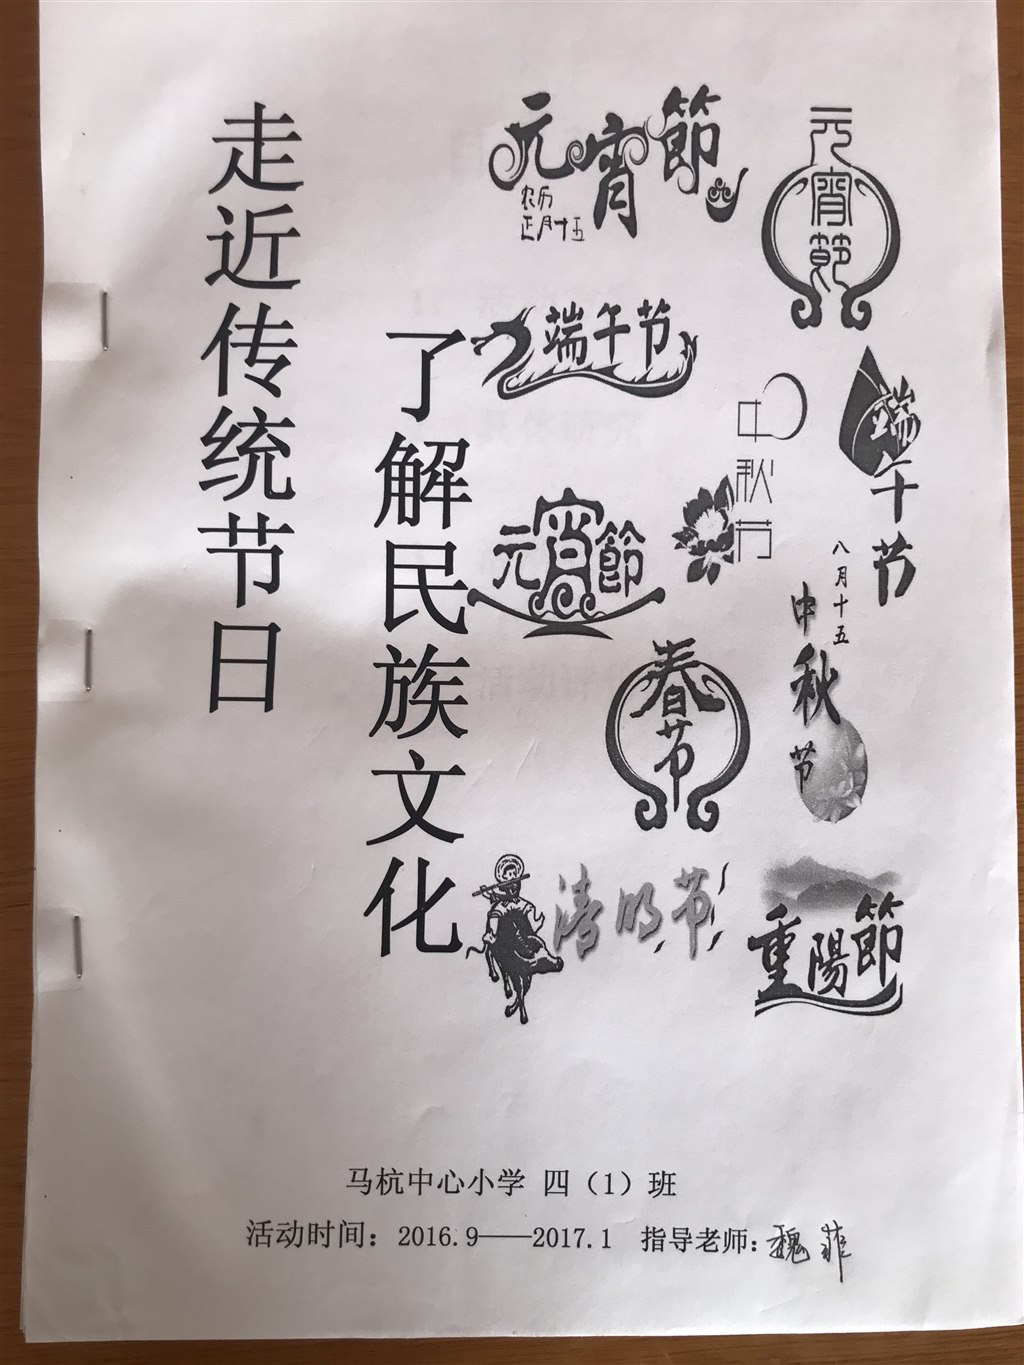 走近传统节日
了解民族文化
元宵節
农历
正月十五
元宵節
端午节
中秋节
端午节
元宵節
八月十五
中秋节
春节
清明节
重陽節
马杭中心小学 四（1）班
活动时间：2016.9——2017.1 指导老师：魏菲